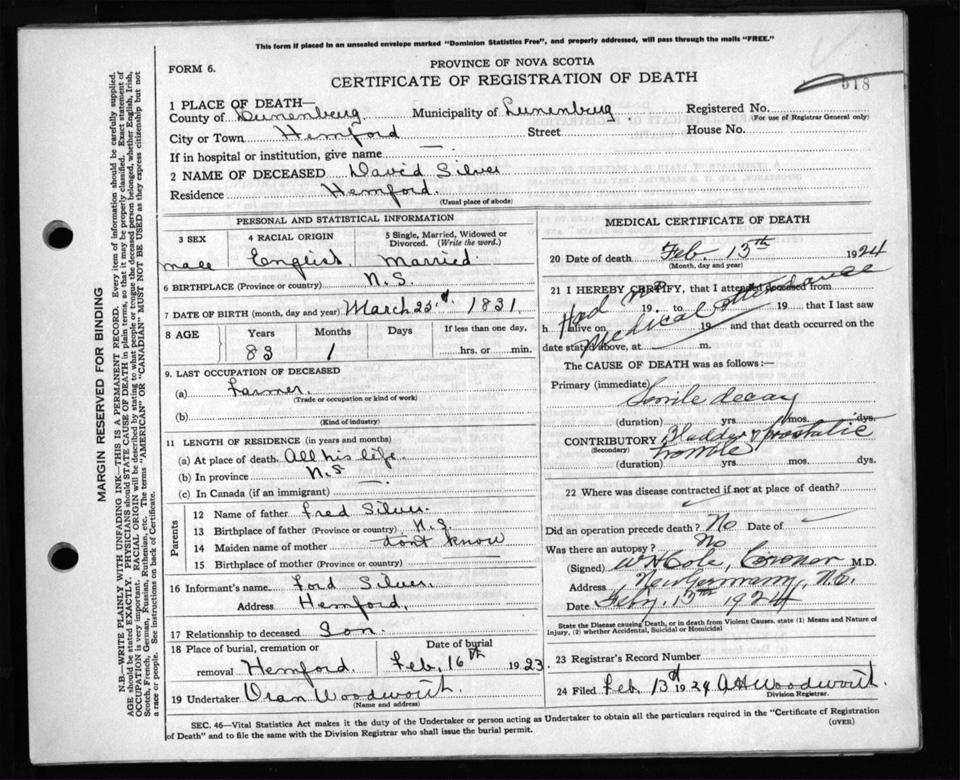 This form if placed in an unsealed envelope marked "Dominion Statistics Free", and properly addressed, will pass through the mails "FREE."
PROVINCE OF NOVA SCOTIA
FORM 6.
CERTIFICATE OF REGISTRATION OF DEATH
518
1 PLACE OF DEATH—
County of Lunenburg. Municipality of Lunenburg Registered No.
(For use of Registrar General only)
City or Town Hemford Street House No.
If in hospital or institution, give name —
2 NAME OF DECEASED David Silver
Residence Hemford.
(Usual place of abode)
PERSONAL AND STATISTICAL INFORMATION
3 SEX 4 RACIAL ORIGIN 5 Single, Married, Widowed or Divorced. (Write the word.)
male English Married.
6 BIRTHPLACE (Province or country) N.S.
7 DATE OF BIRTH (month, day and year) March 25 1831.
8 AGE Years Months Days If less than one day,
83 1 hrs. or min.
9. LAST OCCUPATION OF DECEASED
(a) Farmer.
(Trade or occupation or kind of work)
(b)
(Kind of industry)
11 LENGTH OF RESIDENCE (in years and months)
(a) At place of death. All his life.
(b) In province N.S.
(c) In Canada (if an immigrant) —
Parents
12 Name of father Fred Silver.
13 Birthplace of father (Province or country) N.S.
14 Maiden name of mother dont know
15 Birthplace of mother (Province or country)
16 Informant's name Ford Silver.
Address Hemford.
17 Relationship to deceased Son.
18 Place of burial, cremation or Date of burial
removal Hemford. Feb, 16th 1923
19 Undertaker Oran Woodworth.
(Name and address)
MEDICAL CERTIFICATE OF DEATH
20 Date of death Feb. 13th 1924
(Month, day and year)
21 I HEREBY CERTIFY, that I attended deceased from
19 to 19 that I last saw
h alive on 19 and that death occurred on the
date stated above, at m.
Had no
Medical attendance
The CAUSE OF DEATH was as follows:—
Primary (immediate)
Senile decay
(duration) yrs. mos. dys.
CONTRIBUTORY Bladder & prostatic
(Secondary) trouble
(duration) yrs. mos. dys.
22 Where was disease contracted if not at place of death?
Did an operation precede death? No Date of
Was there an autopsy? No
(Signed) W H Cole, Coronor M.D.
Address New Germany, N.S.
Date Feby. 13th 1924
State the Disease causing Death, or in death from Violent Causes, state (1) Means and Nature of Injury, (2) whether Accidental, Suicidal or Homicidal
23 Registrar's Record Number
24 Filed Feb. 13d 1924 A H Woodworth.
Division Registrar.
SEC. 46—Vital Statistics Act makes it the duty of the Undertaker or person acting as Undertaker to obtain all the particulars required in the "Certificate of Registration
of Death" and to file the same with the Division Registrar who shall issue the burial permit. (OVER)
MARGIN RESERVED FOR BINDING
N.B.—WRITE PLAINLY WITH UNFADING INK—THIS IS A PERMANENT RECORD. Every item of information should be carefully supplied.
AGE should be stated EXACTLY. PHYSICIANS should STATE CAUSE OF DEATH in plain terms, so that it may be properly classified. Exact statement of
OCCUPATION is very important. RACIAL ORIGIN will be described by stating to what people or tongue the deceased person belonged, whether English, Irish,
Scotch, French, German, Russian, Ruthenian, etc. The terms "AMERICAN" OR "CANADIAN" MUST NOT BE USED as they express citizenship but not
a race or people. See instructions on back of Certificate.